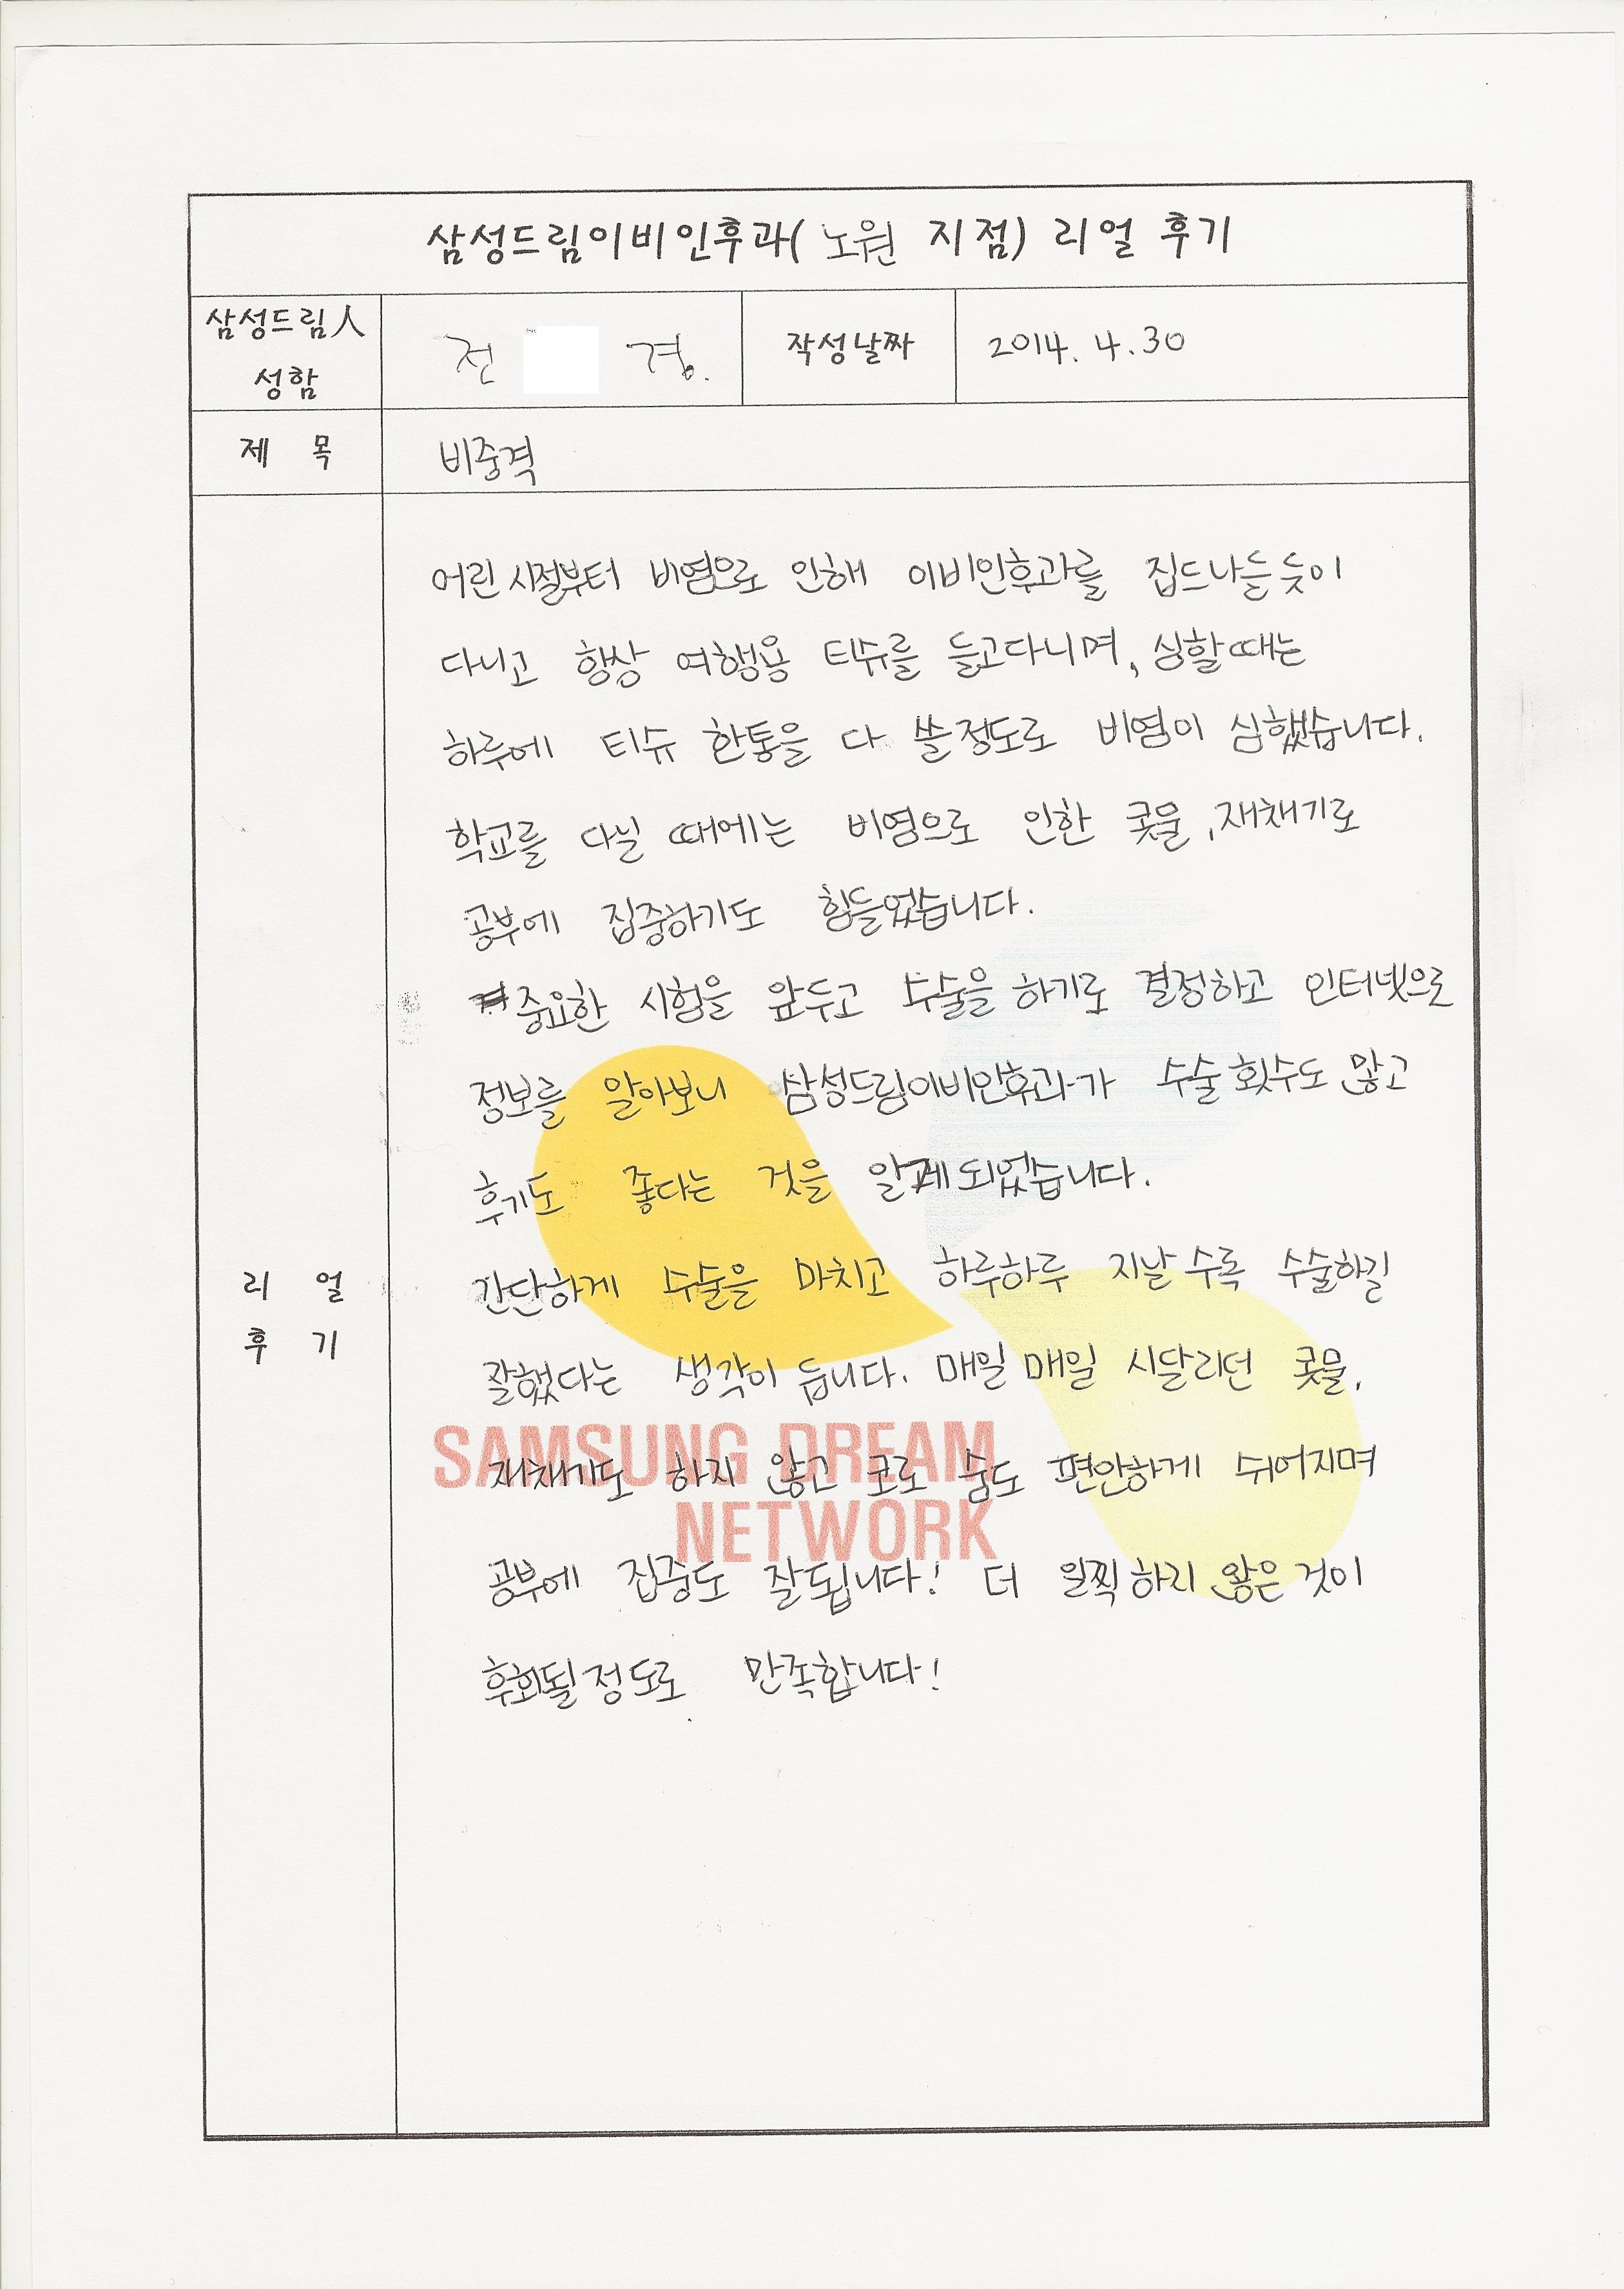 삼성드림이비인후과( 노원 지점) 리얼 후기
삼성드림人
성함
전 경.
작성날짜
2014. 4. 30
제 목
비중격
어린 시절부터 비염으로 인해 이비인후과를 집드나들듯이
다니고 항상 여행용 티슈를 들고다니며, 심할때는
하루에 티슈 한통을 다 쓸정도로 비염이 심했습니다.
학교를 다닐 때에는 비염으로 인한 콧물, 재채기로
공부에 집중하기도 힘들었습니다.
중요한 시험을 앞두고 수술을 하기로 결정하고 인터넷으로
정보를 알아보니 삼성드림이비인후과가 수술 횟수도 많고
후기도 좋다는 것을 알게되었습니다.
리 얼
후 기
간단하게 수술을 마치고 하루하루 지날수록 수술하길
잘했다는 생각이 듭니다. 매일매일 시달리던 콧물,
재채기도 하지 않고 코로 숨도 편안하게 쉬어지며
공부에 집중도 잘됩니다! 더 일찍하지 않은것이
후회될정도로 만족합니다!
SAMSUNG DREAM
NETWORK